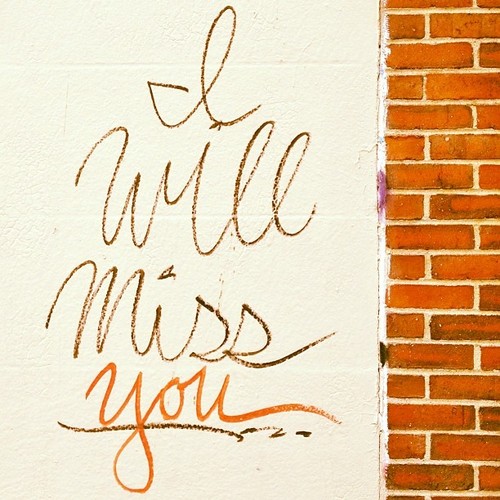 I
Will
Miss
you